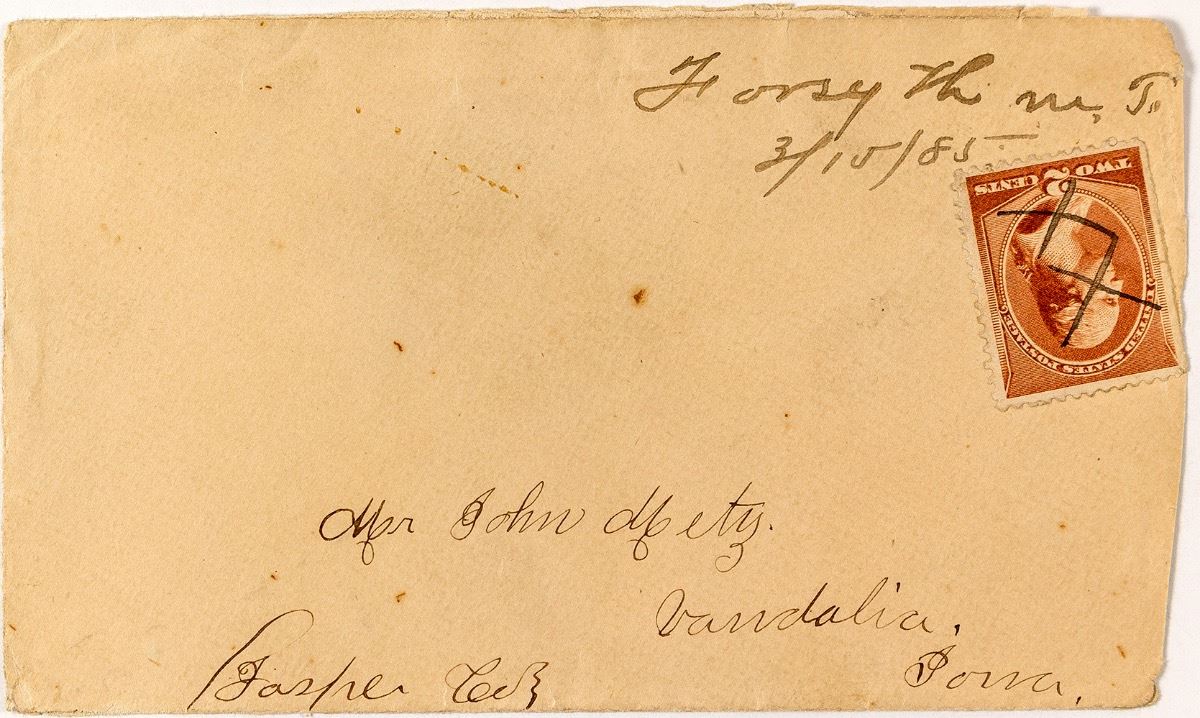 Forsyth M. T.
3/15/85
TWO 2 CENTS
UNITED STATES POSTAGE
Mr John Metz.
Vandalia.
Jasper Co
Iowa.